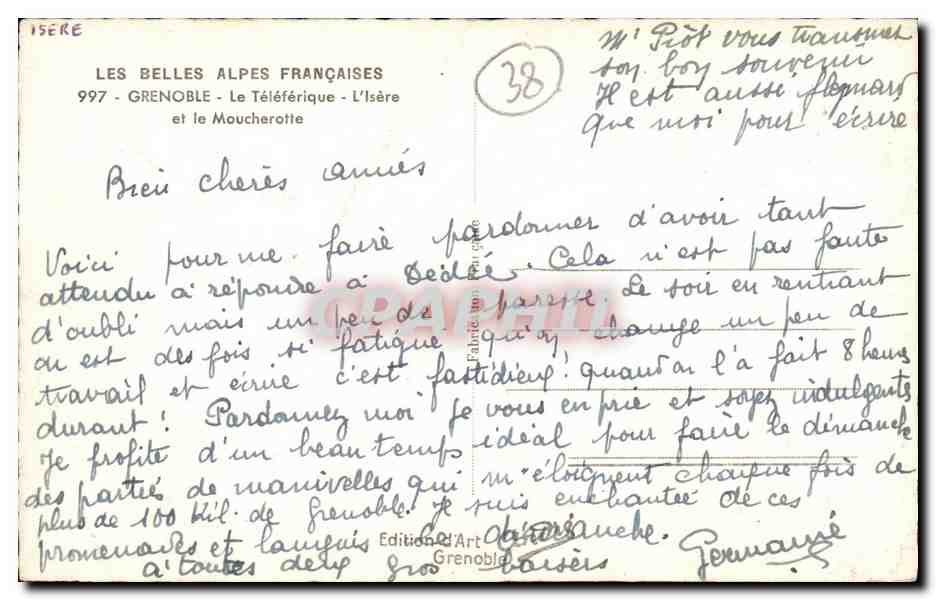 ISERE
LES BELLES ALPES FRANÇAISES
997 - GRENOBLE - Le Téléférique - L'Isère
et le Moucherotte
38
Mr Piôt vous transmet
son bon souvenir
Il est aussi flemard
que moi pour écrire
Bien chères amies
Voici pour me faire pardonner d'avoir tant
attendu à répondre à Dédée. Cela n'est pas faute
d'oubli mais un peu de paresse. Le soir en rentrant
on est des fois si fatigué qu'on change un peu de
travail et écrire c'est fastidieux! quand on l'a fait 8 heures
durant! Pardonnez moi je vous en prie et soyez indulgentes
Je profite d'un beau temps idéal pour faire le dimanche
des parties de manivelles qui m'éloignent chaque fois de
plus de 100 Kil. de Grenoble. Je suis enchantée de ces
promenades et languis le dimanche.
à toutes deux gros baisers Germaine
Fabrication Française
Edition d'Art
Grenoble
CPAPHIL